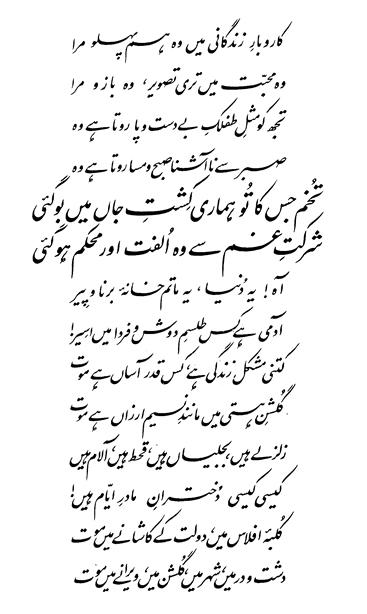 کاروبارِ زندگانی میں وہ ہم پہلو مرا
وہ محبّت میں تری تصویر، وہ بازو مرا
تجھ کو مثلِ طفلکِ بے دست و پا روتا ہے وہ
صبر سے ناآشنا صبح و مسا روتا ہے وہ
تُخم جس کا تُو ہماری کِشتِ جاں میں بو گئی
شرکتِ غم سے وہ اُلفت اور محکم ہوگئی
آہ! یہ دُنیا، یہ ماتم خانۂ برنا و پیر
آدمی ہے کس طلسمِ دوش و فردا میں اسیر!
کتنی مشکل زندگی ہے، کس قدر آساں ہے موت
گُلشنِ ہستی میں مانندِ نسیم ارزاں ہے موت
زلزلے ہیں، بجلیاں ہیں، قحط ہیں، آلام ہیں
کیسی کیسی دُخترانِ مادرِ ایّام ہیں!
کُلبۂ افلاس میں، دولت کے کاشانے میں موت
دشت و در میں، شہر میں، گُلشن میں، ویرانے میں موت